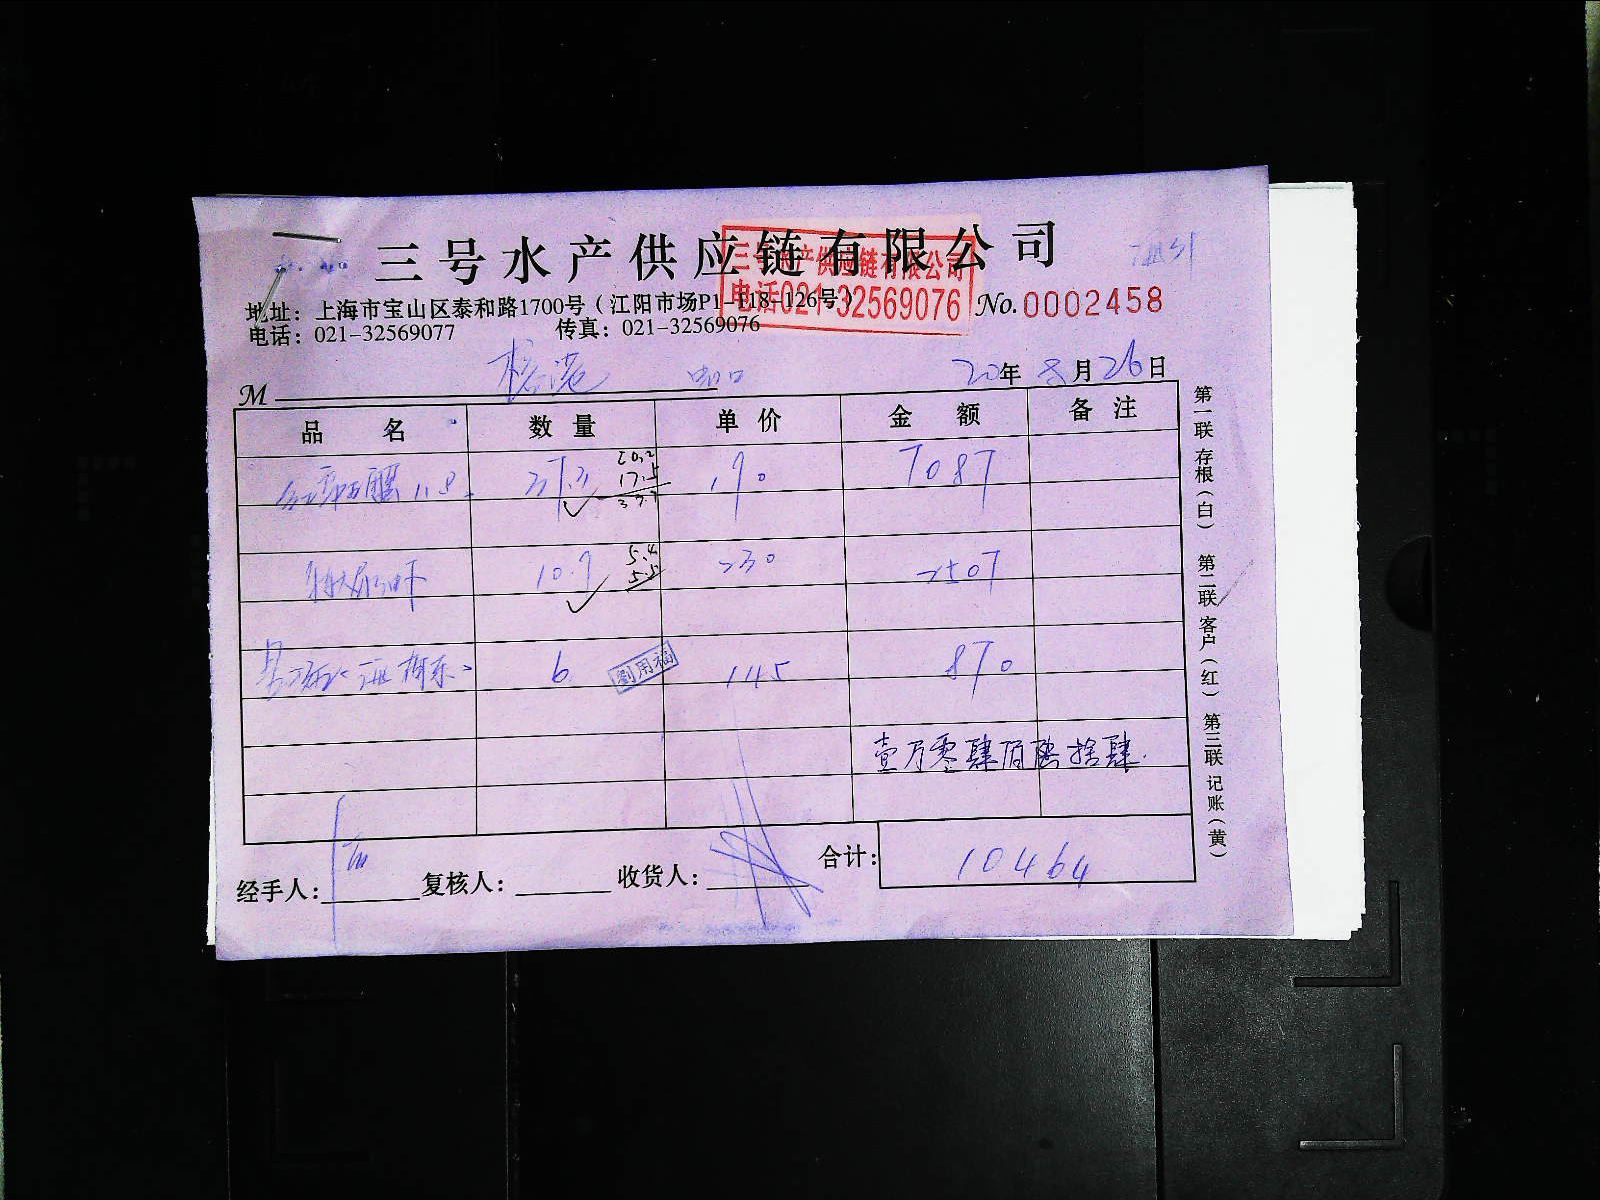 三号水产供应链有限公司
三号水产供应链有限公司
电话021-32569076
地址：上海市宝山区泰和路1700号（江阳市场P1-118-126号）
No.0002458
电话：021-32569077 传真：021-32569076
M
20年8月26日
品名 数量 单价 金额 备注
37.3 20.2 17.5 37.7 190 7087
10.9 5.4 5.5 230 2507
6 劉用福 145 870
壹万零肆佰陆拾肆
经手人： 复核人： 收货人： 合计：10464
第一联 存根（白） 第二联 客户（红） 第三联 记账（黄）